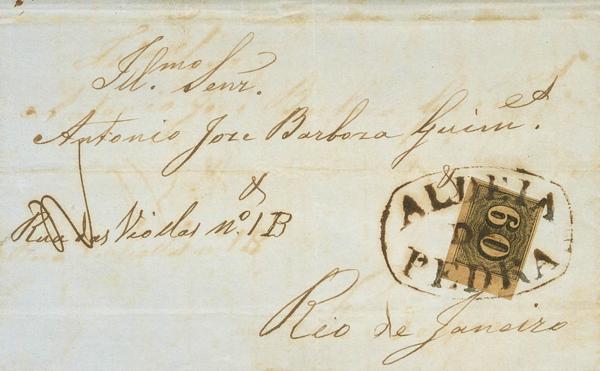 Ill.mo Senr.
Antonio Joze Barboza Guim.es
&
Rua das Viollas n.o 1 B
&
ALDEIA
DA
PEDRA
60
Rio de Janeiro